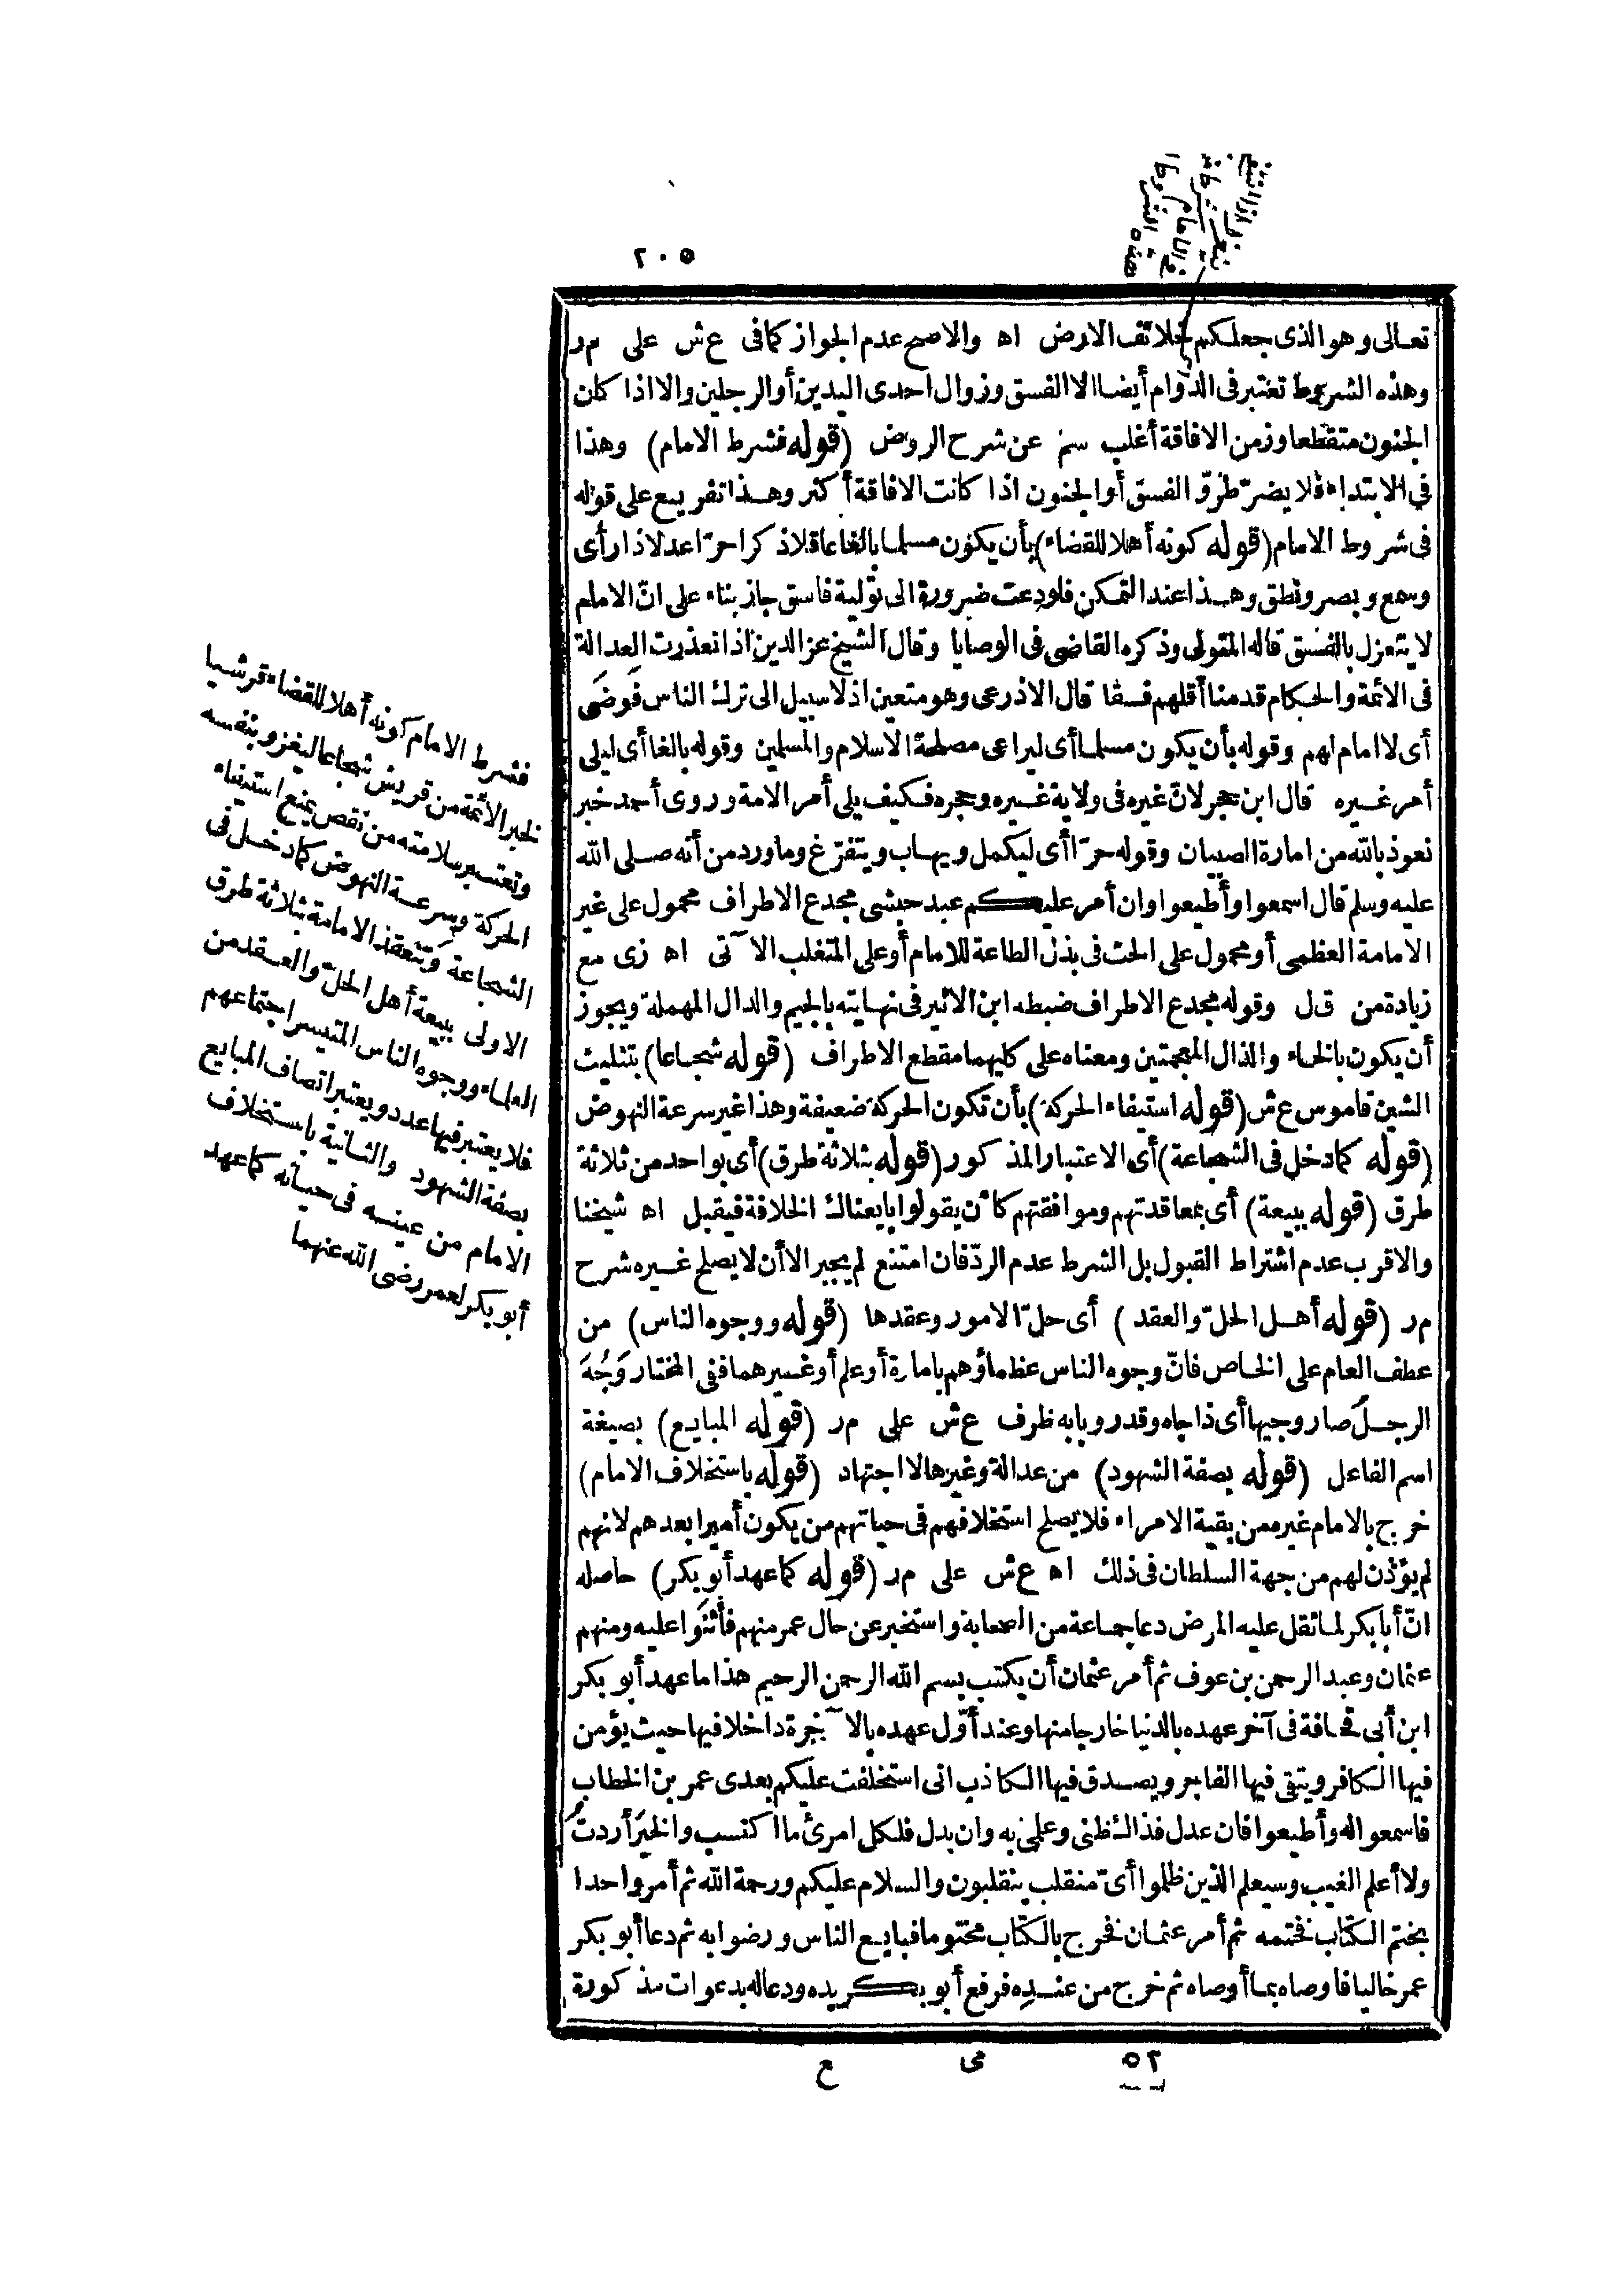 ٢٠٥
تعالى وهو الذى جعلكم خلائف الارض اه والاصح عدم الجواز كمافى ع ش على م ر
وهذه الشروط تعتبر فى الدوام أيضا الا الفسق وزوال احدى اليدين أو الرجلين والا اذا كان
الجنون متقطعا وزمن الافاقة أغلب سم عن شرح الروض (قوله فشرط الامام) وهذا
فى الابتداء فلا يضرّ طروّ الفسق أو الجنون اذا كانت الافاقة أكثر وهذا تفريع على قوله
فى شروط الامام (قوله كونه أهلا للقضاء) بأن يكون مسلما بالغا عاقلا ذكرا حرّا عدلا ذا رأى
وسمع وبصر ونطق وهذا عند التمكن فلو دعت ضرورة الى تولية فاسق جاز بناء على انّ الامام
لا ينعزل بالفسق قاله المتولى وذكره القاضى فى الوصايا وقال الشيخ عز الدين اذا تعذرت العدالة
فى الائمة والحكام قدمنا أقلهم فسقا قال الاذرعى وهو متعين اذ لا سبيل الى ترك الناس فوضى
أى لا امام لهم وقوله بأن يكون مسلما أى ليراعى مصلحة الاسلام والمسلمين وقوله بالغا أى ليلى
أمر غيره قال ابن حجر لانّ غيره فى ولاية غيره وحجره فكيف يلى أمر الامة وروى أحمد خبر
نعوذ بالله من امارة الصبيان وقوله حرّا أى ليكمل ويهاب ويتفرّغ وما ورد من أنه صلى الله
عليه وسلم قال اسمعوا وأطيعوا وان أمر عليكم عبد حبشى مجدع الاطراف محمول على غير
الامامة العظمى أو محمول على الحث فى بذل الطاعة للامام أو على المتغلب الآتى اه زى مع
زيادة من ق ل وقوله مجدع الاطراف ضبطه ابن الاثير فى نهايته بالجيم والدال المهملة ويجوز
أن يكون بالخاء والذال المعجمتين ومعناه على كليهما مقطع الاطراف (قوله شجاعا) بتثليث
الشين قاموس ع ش (قوله استيفاء الحركة) بأن تكون الحركة ضعيفة وهذا غير سرعة النهوض
(قوله كما دخل فى الشجاعة) أى الاعتبار المذكور (قوله بثلاثة طرق) أى بواحد من ثلاثة
طرق (قوله ببيعة) أى بمعاقدتهم وموافقتهم كأن يقولوا بايعناك الخلافة فيقبل اه شيخنا
والاقرب عدم اشتراط القبول بل الشرط عدم الردّ فان امتنع لم يجبر الا أن لا يصلح غيره شرح
م ر (قوله أهل الحلّ والعقد) أى حلّ الامور وعقدها (قوله ووجوه الناس) من
عطف العام على الخاص فانّ وجوه الناس عظماؤهم بامارة أو علم أو غيرهما ففى المختار وَجُهَ
الرجل صار وجيها أى ذا جاه وقدر وبابه ظرف ع ش على م ر (قوله المبايع) بصيغة
اسم الفاعل (قوله بصفة الشهود) من عدالة وغيرها لا اجتهاد (قوله باستخلاف الامام)
خرج بالامام غيره من بقية الامراء فلا يصلح استخلافهم فى حياتهم من يكون أميرا بعدهم لانهم
لم يؤذن لهم من جهة السلطان فى ذلك اه ع ش على م ر (قوله كما عهد أبو بكر) حاصله
انّ أبا بكر لما ثقل عليه المرض دعا جماعة من الصحابة واستخبر عن حال عمر منهم فأثنوا عليه ومنهم
عثمان وعبد الرحمن بن عوف ثم أمر عثمان أن يكتب بسم الله الرحمن الرحيم هذا ما عهد أبو بكر
ابن أبى قحافة فى آخر عهده بالدنيا خارجا منها وعند أوّل عهده بالآخرة داخلا فيها حيث يؤمن
فيها الكافر ويتقى فيها الفاجر ويصدق فيها الكاذب انى استخلفت عليكم بعدى عمر بن الخطاب
فاسمعوا له وأطيعوا فان عدل فذاك ظنى وعلمى به وان بدل فلكل امرئ ما اكتسب والخير أردت
ولا أعلم الغيب وسيعلم الذين ظلموا أىّ منقلب ينقلبون والسلام عليكم ورحمة الله ثم أمر واحدا
بختم الكتاب فختمه ثم أمر عثمان فخرج بالكتاب مختوما فبايع الناس ورضوا به ثم دعا أبو بكر
عمر خاليا فاوصاه بما أوصاه ثم خرج من عنده فرفع أبو بكر يده ودعا له بدعوات مذكورة
فشرط الامام كونه أهلا للقضاء قرشيا
لخبر الأئمة من قريش شجاعا ليغزو بنفسه
وتعتبر سلامته من نقص يمنع استيفاء
الحركة وسرعة النهوض كما دخل فى
الشجاعة وتنعقد الامامة بثلاثة طرق
الاولى ببيعة أهل الحلّ والعقد من
العلماء ووجوه الناس المتيسر اجتماعهم
فلا يعتبر فيها عدد ويعتبر اتصاف المبايع
بصفة الشهود والثانية باستخلاف
الامام من عينه فى حياته كما عهد
أبو بكر لعمر رضى الله عنهما
٥٢ مى ع